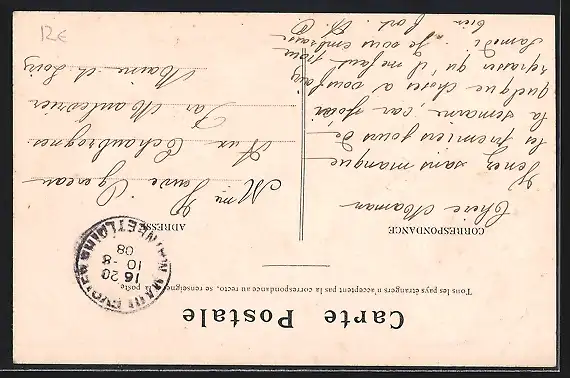 12€
Carte Postale
Tous les pays étrangers n'acceptent pas la correspondance au recto, se renseigner à la poste
CORRESPONDANCE
Chère Maman
Venez sans manque
les premiers jours de
la semaine, car j'ai
quelque chose à vous faire
repasser qu'il me faut pour
Samedi. Je vous embrasse
bien fort.
ADRESSE
Mme Veuve
Aux Echaubrognes
Par Maulévrier
Maine et Loire
16 20
10 - 8
08
MAINE ET LOIRE